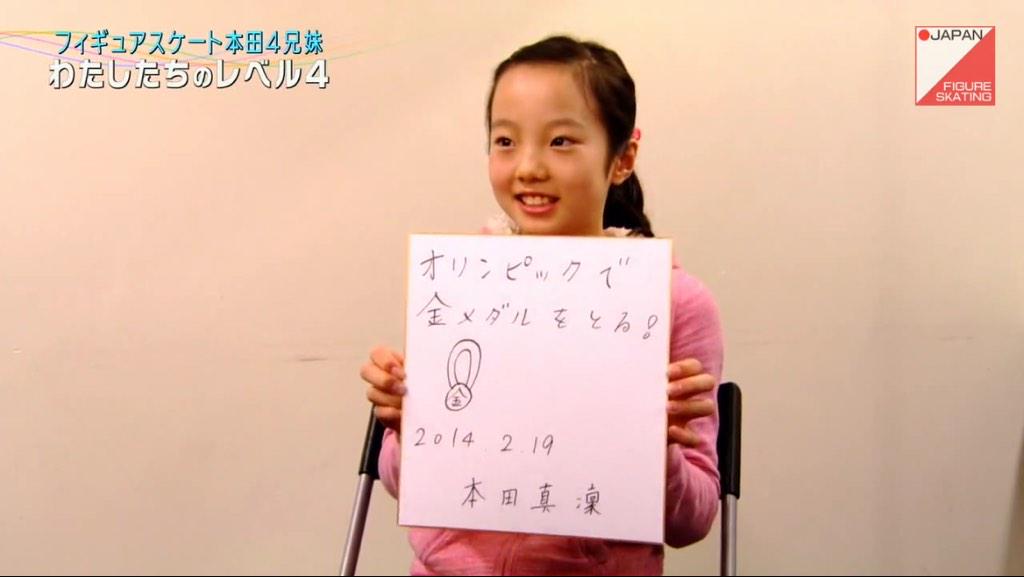 フィギュアスケート本田4兄妹
わたしたちのレベル4
JAPAN
FIGURE
SKATING
オリンピックで
金メダルをとる!
金
2014.2.19
本田真凜